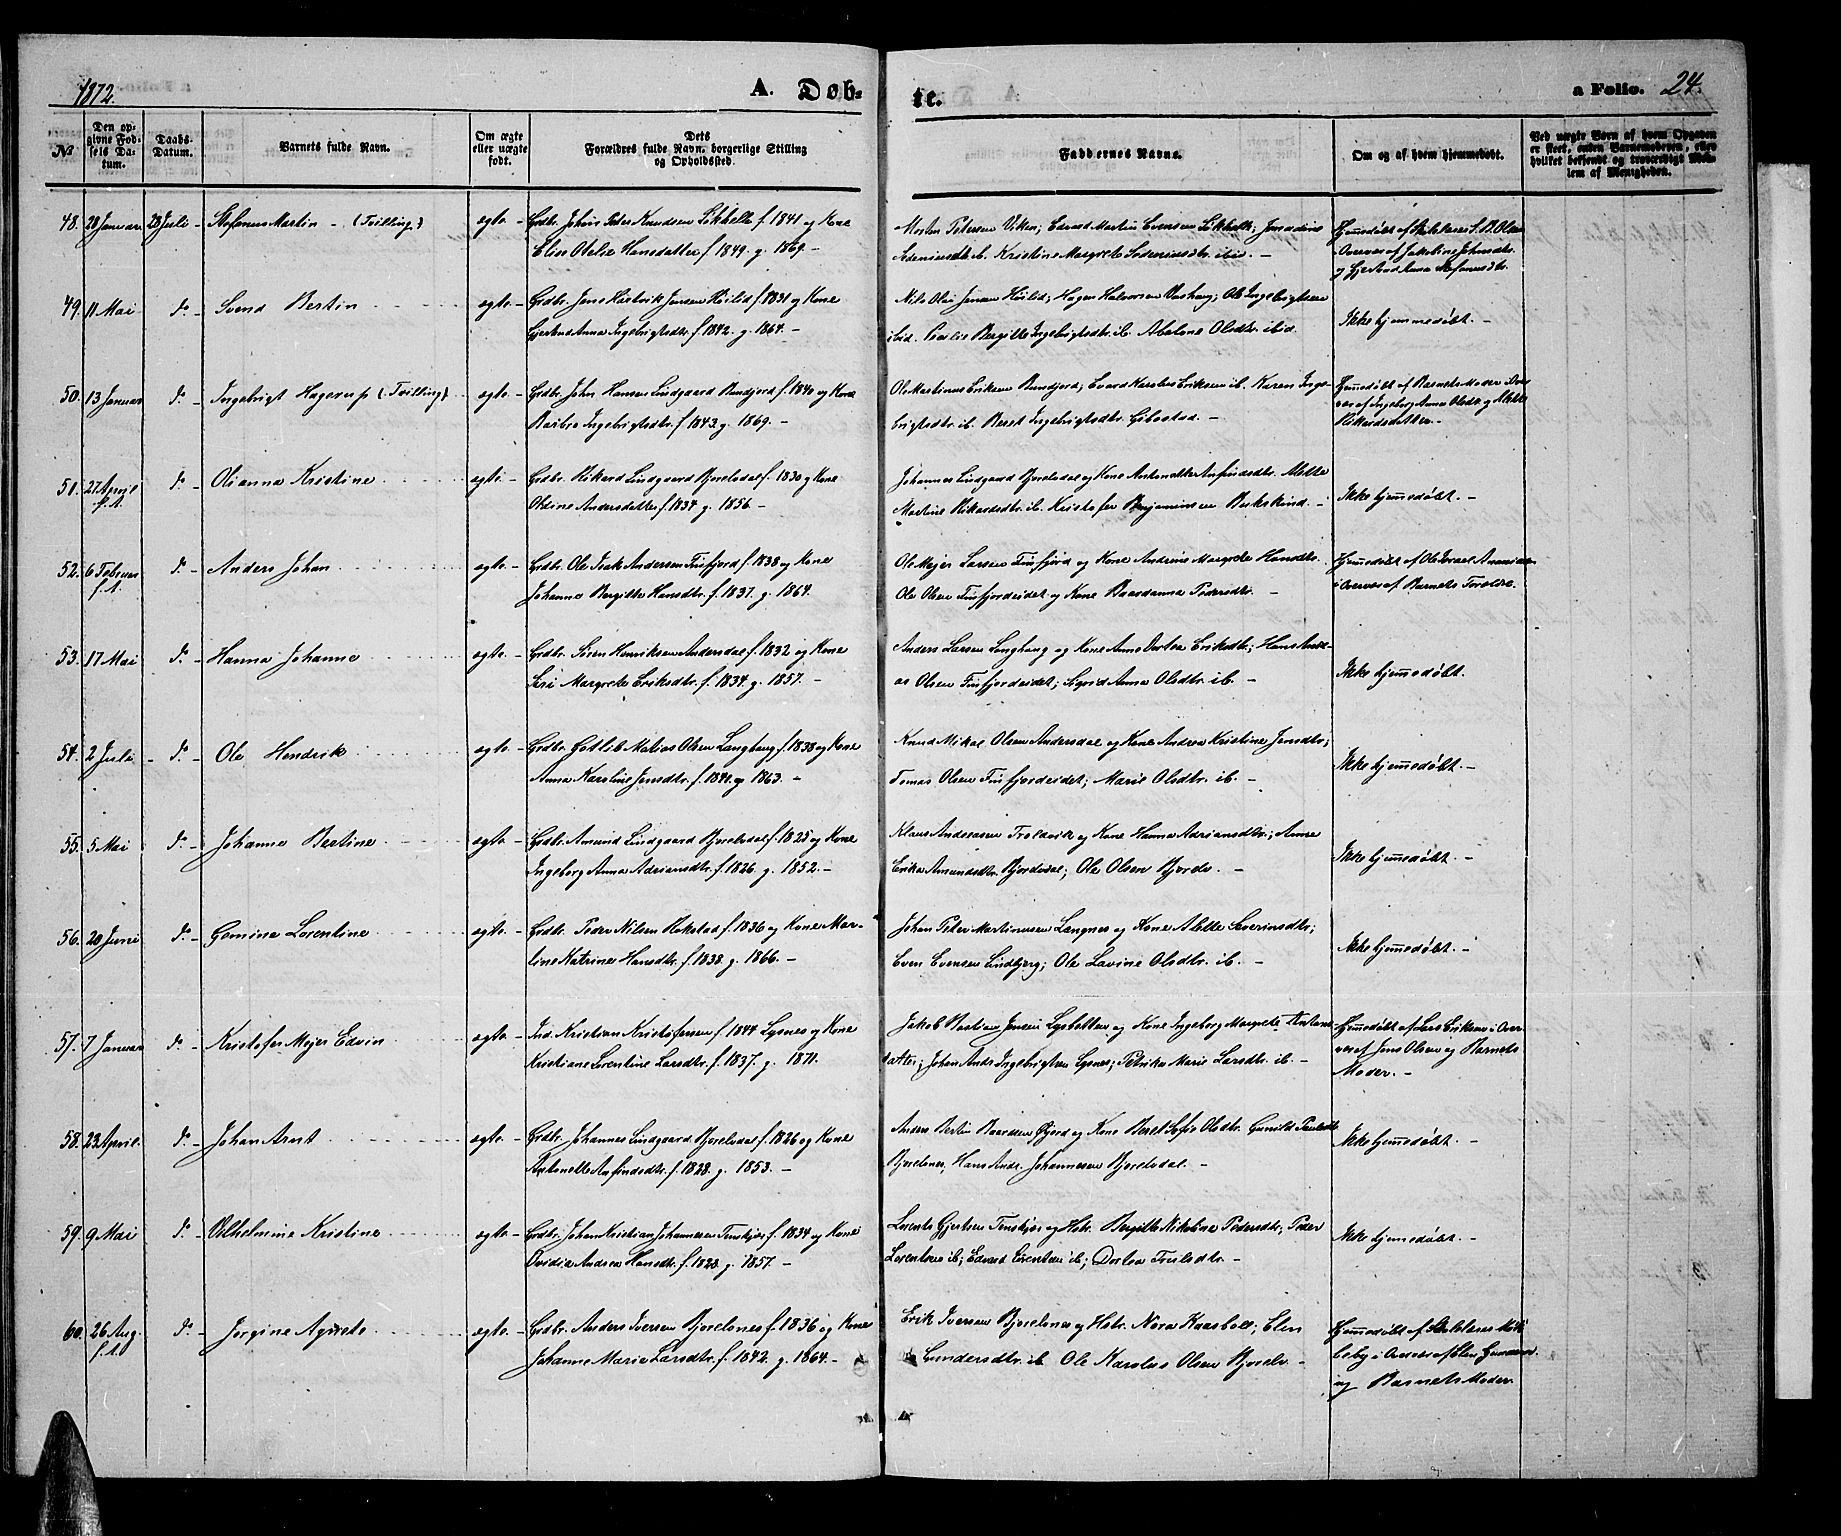 1872.
A. Døb-
te.
a Folio. 24.
No
Den opgivne Fødsels Datum.
Daabs-Datum.
Barnets fulde Navn.
Om ægte eller uægte født.
Dets Forældres fulde Navn, borgerlige Stilling og Opholdssted.
Faddernes Navne.
Om og af hvem hjemmedøbt.
Ved uægte Børn af hvem Opgaven er skeet, enten Barnemoderen, eller hvilket bekjendt og troværdigt Medlem af Menigheden.
48. 28 Januar 28 Juli - Stefanus Martin - (Tvilling) ægte - Grdbr. Johan Peder Knudsen Løkhelle f. 1841 og Kone
Elise Otelie Hansdatter f. 1849. g. 1869. -
Morten Petersen Viken; Edvard Martin Evensen
ib. Kristine Margrete ibid. -
49. 11 Mai do - Svend Bertin ægte - Grdbr. Jens Henrik Jensen f. 1831 og Kone
Gjertrud Anna Ingebrigtsdtr. f. 1842. g. 1864. -
Nils Olai Jensen Hagen Halvorsen Ole Ingebrigtsen
ibid. Bergitte Ingebrigtsdtr. ib. Abelone Olsdtr. ibid.
Ikke hjemmedøbt. -
50. 13 Januar do - Ingebrigt Hagerup (Tvilling) ægte - Grdbr. John Hansen Lindgaard Bundjord f. 1840 og Kone
Barbro Ingebrigtsdtr. f. 1843. g. 1869. -
Ole Martinus Eriksen Bundjord; Edvard Karolus Eriksen ib. Karen Inge-
brigtsdtr. ib. Beret Ingebrigtsdtr. Gibostad. -
Hjemmedøbt af Barnets Moder Over-
vær af Ingeborg Anna Olsdtr. og
Rikardsdatter. -
51. 27 April f. A. do - Olianna Kristine ægte - Grdbr. Rikard Lindgaard Bjorelvdal f. 1830 og Kone
Oldine Andersdatter f. 1834 g. 1856 -
Johannes Lindgaard Bjorelvdal og Kone Antonette Anfindsdtr. Alette
Martine Rikardsdtr. ib. Kristofer Benjaminsen Bukskind. -
Ikke hjemmedøbt. -
52. 6 Februar f. A. do - Anders Johan ægte - Grdbr. Ole Isak Andersen Finfjord f. 1838 og Kone
Johanna Bergitte Hansdtr. f. 1837. g. 1864.
Ole Mejer Larsen Finfjord og Kone Andrine Margrete Hansdtr.
Ole Olsen Finfjordeidet og Kone Baardanna Pedersdtr. -
Hjemmedøbt af Ole
i Overvær af Barnets Forældre.
53. 17 Mai do - Hanna Johanne ægte - Grdbr. Søren Henriksen Andersdal f. 1832 og Kone
Siri Margrete Eriksdtr. f. 1834. g. 1857. -
Anders Larsen Langhaug og Kone Anne Dortea Eriksdtr.; Hans Andre-
as Olsen Finfjordeidet; Sigrid Anna Olsdtr. ib. -
Ikke hjemmedøbt.
54. 2 Juli - do - Ole Hendrik ægte - Grdbr. Gotlib Matias Olsen Langhaug f. 1838 og Kone
Anna Karoline Jensdtr. f. 1841. g. 1863. -
Knud Mikal Olsen Andersdal og Kone Andrea Kristine Jensdtr.;
Tomas Olsen Finfjordeidet; Marie Olsdtr. ib. -
Ikke hjemmedøbt. -
55. 5 Mai do - Johanna Bertine ægte - Grdbr. Amund Lindgaard Bjorelvdal f. 1825 og Kone
Ingeborg Anna Adriansdtr. f. 1826. g. 1852. -
Klaus Andreasen Troldvik og Kone Hanna Adriansdtr.; Anne
Erika Amundsdtr. Bjorelvdal; Ole Olsen Bjorelv. -
Ikke hjemmedøbt. -
56. 20 Juni do - Gemina Lorentine ægte - Grdbr. Peder Nilsen Rokstad f. 1836 og Kone Mar-
tine Katrine Hansdtr. f. 1838. g. 1866. -
Johan Peter Martinusen Langnes og Kone Alette Severinsdtr.;
Even Evensen Lindbjerg; Ole Lavine Olsdtr. ib. -
Ikke hjemmedøbt. -
57. 7 Januar do - Kristofer Mejer Edvin ægte - Ind. Kristian Kristofersen f. 1844 Lysnes og Kone
Kristiane Lorentine Larsdtr. f. 1837. g. 1871.
Jakob Bastian Jensen Lysbotten og Kone Ingeborg Margrete Antons-
datter; Johan Andr. Ingebrigtsen Lysnes; Petrikke Marie Larsdtr. ib. -
Hjemmedøbt af Lars Eriksen i Over-
vær af Jens Olsen og Barnets
Moder. -
58. 23 April. do - Johan Arnt ægte - Grdbr. Johannes Lindgaard Bjorelvdal f. 1826 og Kone
Antonette Anfindsdtr. f. 1828. g. 1853. -
Anders Bertin Baardsen Øjord og Kone Beret Sofie Olsdtr. Gunild
Bjorelvnes, Hans Andr. Johannesen Bjorelvdal. -
Ikke hjemmedøbt. -
59. 9 Mai do - Vilhelmine Kristine ægte - Grdbr. Johan Kristian Johannesen Tennskjær f. 1834 og Kone
Ovidia Andrea Hansdtr. f. 1828. g. 1857. -
Lorents Gjertsen Tennskjær og Hstr. Bergitte Nikoline Pedersdtr.; Peder
Lorentsen ib; Edvard Lorentsen ib; Dortea Troilsdtr. -
Ikke hjemmedøbt. -
60. 26 Aug. f. A. do - Jørgine Agrete ægte - Grdbr. Anders Iversen Bjorelvnes f. 1836 og Kone
Johanne Maria Larsdtr. f. 1842. g. 1864. -
Erik Iversen Bjorelvnes og Hstr. Nora Kaasbøll; Elen
Gundersdtr. ib. Ole Karolus Olsen Bjorelv. -
Hjemmedøbt af
i Overvær af Elen
og Barnets Moder